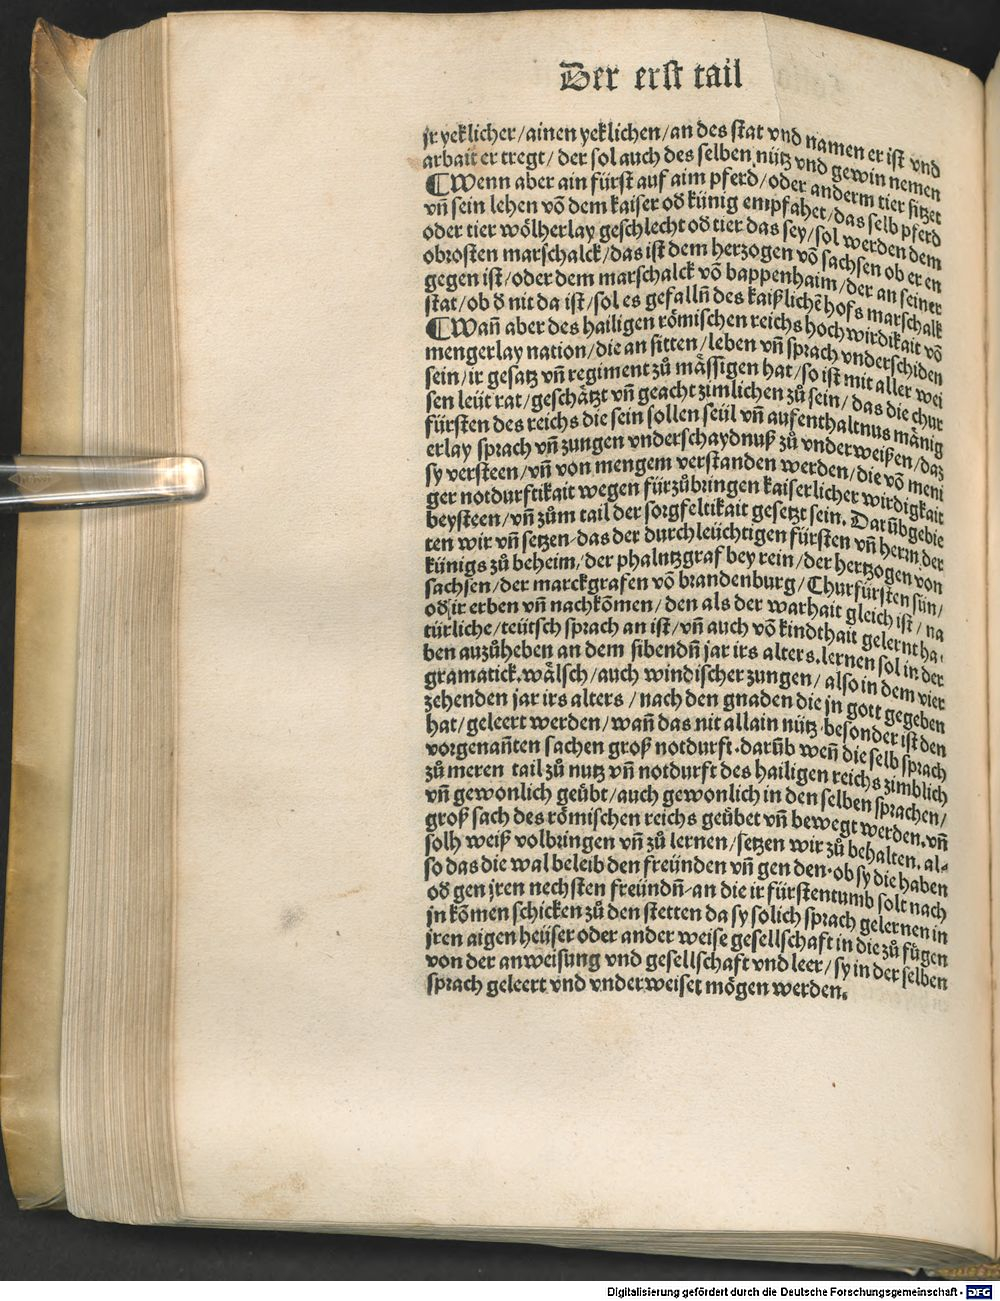 Der erst tail
jr yeklicher/ainen yeklichen/an des stat vnd namen er ist vnd
arbait er tregt/ der sol auch des selben nütz vnd gewin nemen
¶Wenn aber ain fürst auf aim pferd/oder anderm tier sitzet
vñ sein lehen võ dem kaiser od künig empfahet/das selb pferd
oder tier wölherlay geschlecht od tier das sey/sol werden dem
obrosten marschalck/das ist dem herzogen võ sachsen ob er en
gegen ist/oder dem marschalck võ bappenhaim/der an seiner
stat/ob d nit da ist/sol es gefallñ des kaißlichẽ hofs marschalk
¶Wañ aber des hailigen römischen reichs hochwirdikait võ
mengerlay nation/die an sitten/leben vñ sprach vnderschiden
sein/ir gesatz vñ regiment zů mässigen hat/so ist mit aller wei
sen leüt rat/geschätzt vñ geacht zimlichen zů sein/das die chur
fürsten des reichs die sein sollen seül vñ aufenthaltnus mänig
erlay sprach vñ zungen vnderschaydnuß zů vnderweißen/daz
sy versteen/vñ von mengem verstanden werden/die võ meni
ger notdurftikait wegen fürzůbringen kaiserlicher wirdigkait
beysteen/vñ zům tail der sorgfeltikait gesetzt sein. Darũbgebie
ten wir vñ setzen-das der durchleüchtigen fürsten vñ herrn der
künigs zů beheim/der phalntzgraf bey rein/der hertzogen von
sachsen/der marckgrafen võ brandenburg/Churfürsten sün/
od ir erben vñ nachkõmen/den als der warhait gleich ist/na
türliche/teütsch sprach an ist/vñ auch võ kindthait gelernt ha-
ben auzůheben an dem sibendñ jar irs alters.lernen sol in der
gramatick.wälsch/auch windischer zungen/also in dem vier
zehenden jar irs alters/nach den gnaden die jn gott gegeben
hat/geleert werden/wañ das nit allain nütz.besonder ist den
vorgenañten sachen groß notdurft.darũb weñ die selb sprach
zů meren tail zů nutz vñ notdurft des hailigen reichs zimblich
vñ gewonlich geübt/auch gewonlich in den selben sprachen/
groß sach des römischen reichs geübet vñ bewegt werden.vñ
solh weiß volbringen vñ zů lernen/setzen wir zů behalten. al-
so das die wal beleib den freünden vñ gen den.ob sy die haben
od gen jren nechsten freündñ-an die ir fürstentumb solt nach
jn kõmen schicken zů den stetten da sy solich sprach gelernen in
jren aigen heüser oder ander weise gesellschaft in die zů fügen
von der anweisung vnd gesellschaft vnd leer/sy in der selben
sprach geleert vnd vnderweiset mögen werden.
Digitalisierung gefördert durch die Deutsche Forschungsgemeinschaft - DFG